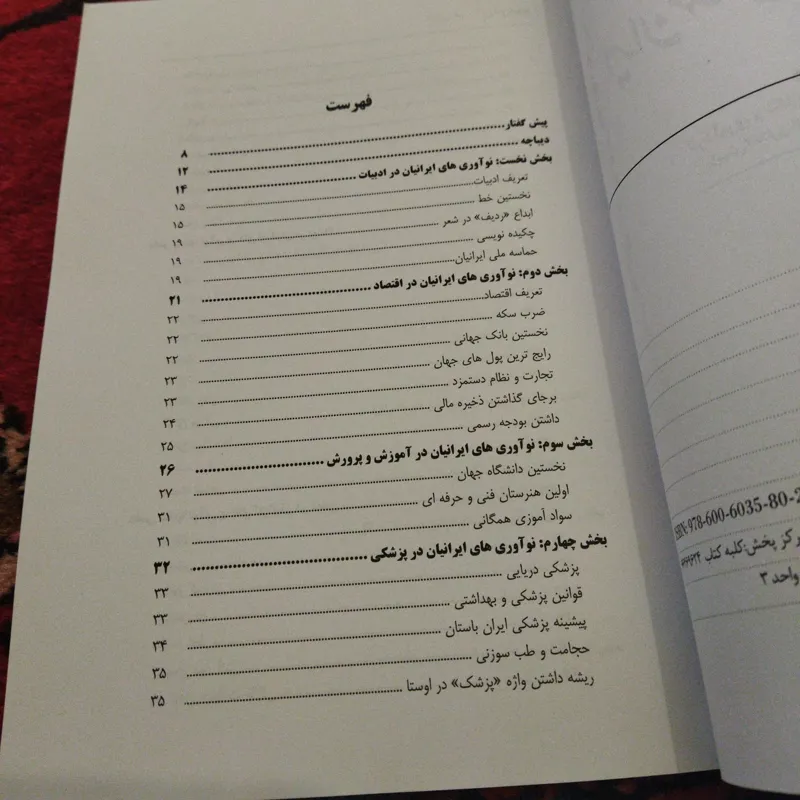 فهرست
پیش گفتار ........ ۸
دیباچه ........ ۱۲
بخش نخست: نوآوری های ایرانیان در ادبیات ........ ۱۴
تعریف ادبیات ........ ۱۵
نخستین خط ........ ۱۵
ابداع «ردیف» در شعر ........ ۱۹
چکیده نویسی ........ ۱۹
حماسه ملی ایرانیان ........ ۱۹
بخش دوم: نوآوری های ایرانیان در اقتصاد ........ ۲۱
تعریف اقتصاد ........ ۲۲
ضرب سکه ........ ۲۲
نخستین بانک جهانی ........ ۲۲
رایج ترین پول های جهان ........ ۲۳
تجارت و نظام دستمزد ........ ۲۳
برجای گذاشتن ذخیره مالی ........ ۲۴
داشتن بودجه رسمی ........ ۲۵
بخش سوم: نوآوری های ایرانیان در آموزش و پرورش ........ ۲۶
نخستین دانشگاه جهان ........ ۲۷
اولین هنرستان فنی و حرفه ای ........ ۳۱
سواد آموزی همگانی ........ ۳۱
بخش چهارم: نوآوری های ایرانیان در پزشکی ........ ۳۲
پزشکی دریایی ........ ۳۳
قوانین پزشکی و بهداشتی ........ ۳۳
پیشینه پزشکی ایران باستان ........ ۳۴
حجامت و طب سوزنی ........ ۳۵
ریشه داشتن واژه «پزشک» در اوستا ........ ۳۵
ISBN: 978-600-6035-80-2
رکز پخش: کلبه کتاب
واحد ۳